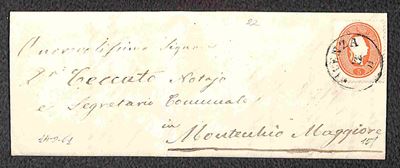 22
VICENZA
5
Onorevolissimo Signore
Ceccato Notajo
e Segretario Comunale
in
Montecchio Maggiore